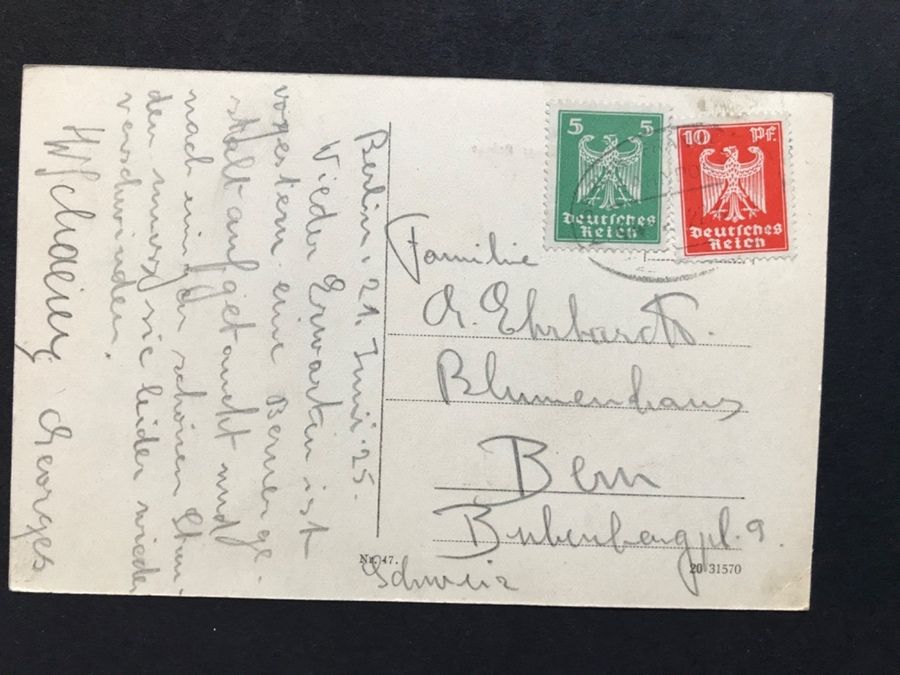 Berlin, 21. Juni 25.
Wieder Erwarten ist
vorgestern eine Berner ge-
stalt aufgetaucht und
nach einigen schönen Stun-
den muss sie leider wieder
verschwinden.
Georges
5 5
Deutsches
Reich
10 Pf.
Deutsches
Reich
Familie
A. Ehrhardt.
Blumenhaus
Bern
Bubenbergpl. 9.
Schweiz
Nr. 47.
20 31570